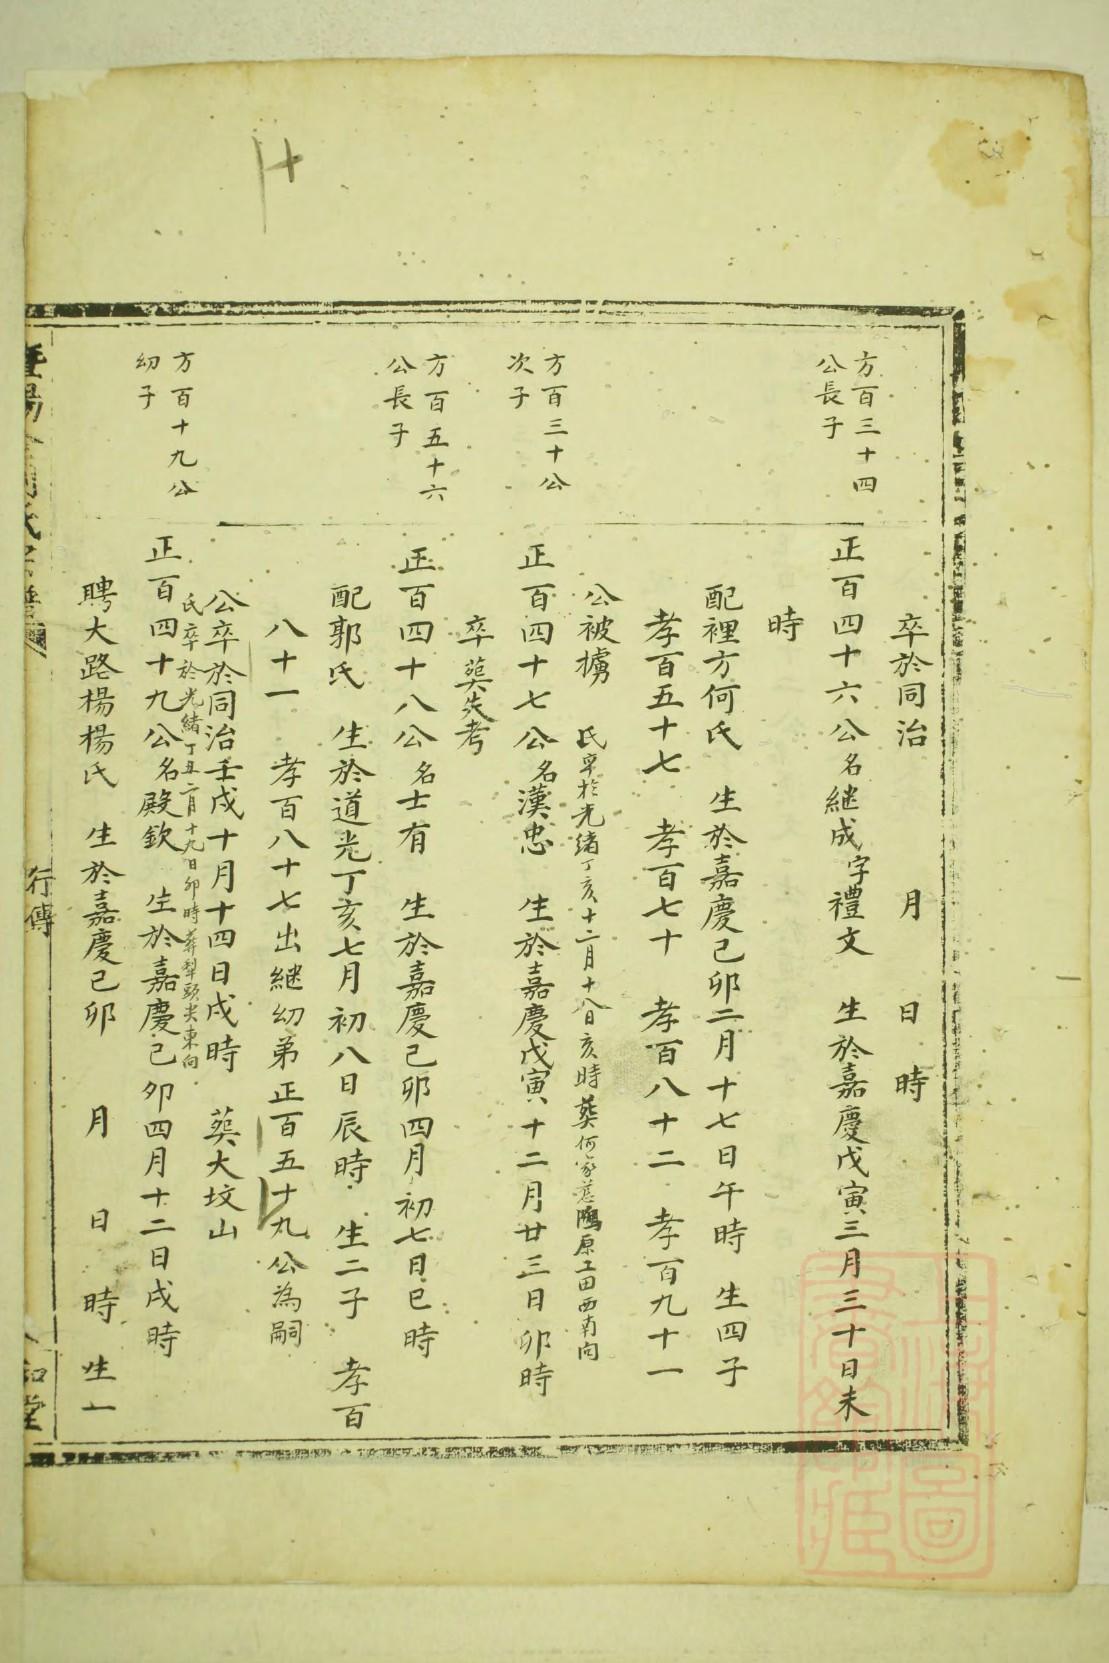 卒於同治 月 日 時
方百三十四
公長子
正百四十六公名繼成字禮文 生於嘉慶戊寅三月三十日未
時
配裡方何氏 生於嘉慶己卯二月十七日午時 生四子
孝百五十七 孝百七十 孝百八十二 孝百九十一
公被擄 氏卒於光緒丁亥十二月十八日亥時葬何家 原工田西南向
方百三十公
次子
正百四十七公名漢忠 生於嘉慶戊寅十二月廿三日卯時
卒葬失考
方百五十六
公長子
正百四十八公名士有 生於嘉慶己卯四月初七日巳時
配郭氏 生於道光丁亥七月初八日辰時 生二子 孝百
八十一 孝百八十七出継幼弟正百五十九公為嗣
公卒於同治壬戌十月十四日戌時 葬大坟山
氏卒於光緒丁丑二月十九日卯時葬犁頭尖東向
方百十九公
幼子
正百四十九公名殿欽 生於嘉慶己卯四月十二日戌時
聘大路楊楊氏 生於嘉慶己卯 月 日 時 生一
行傳